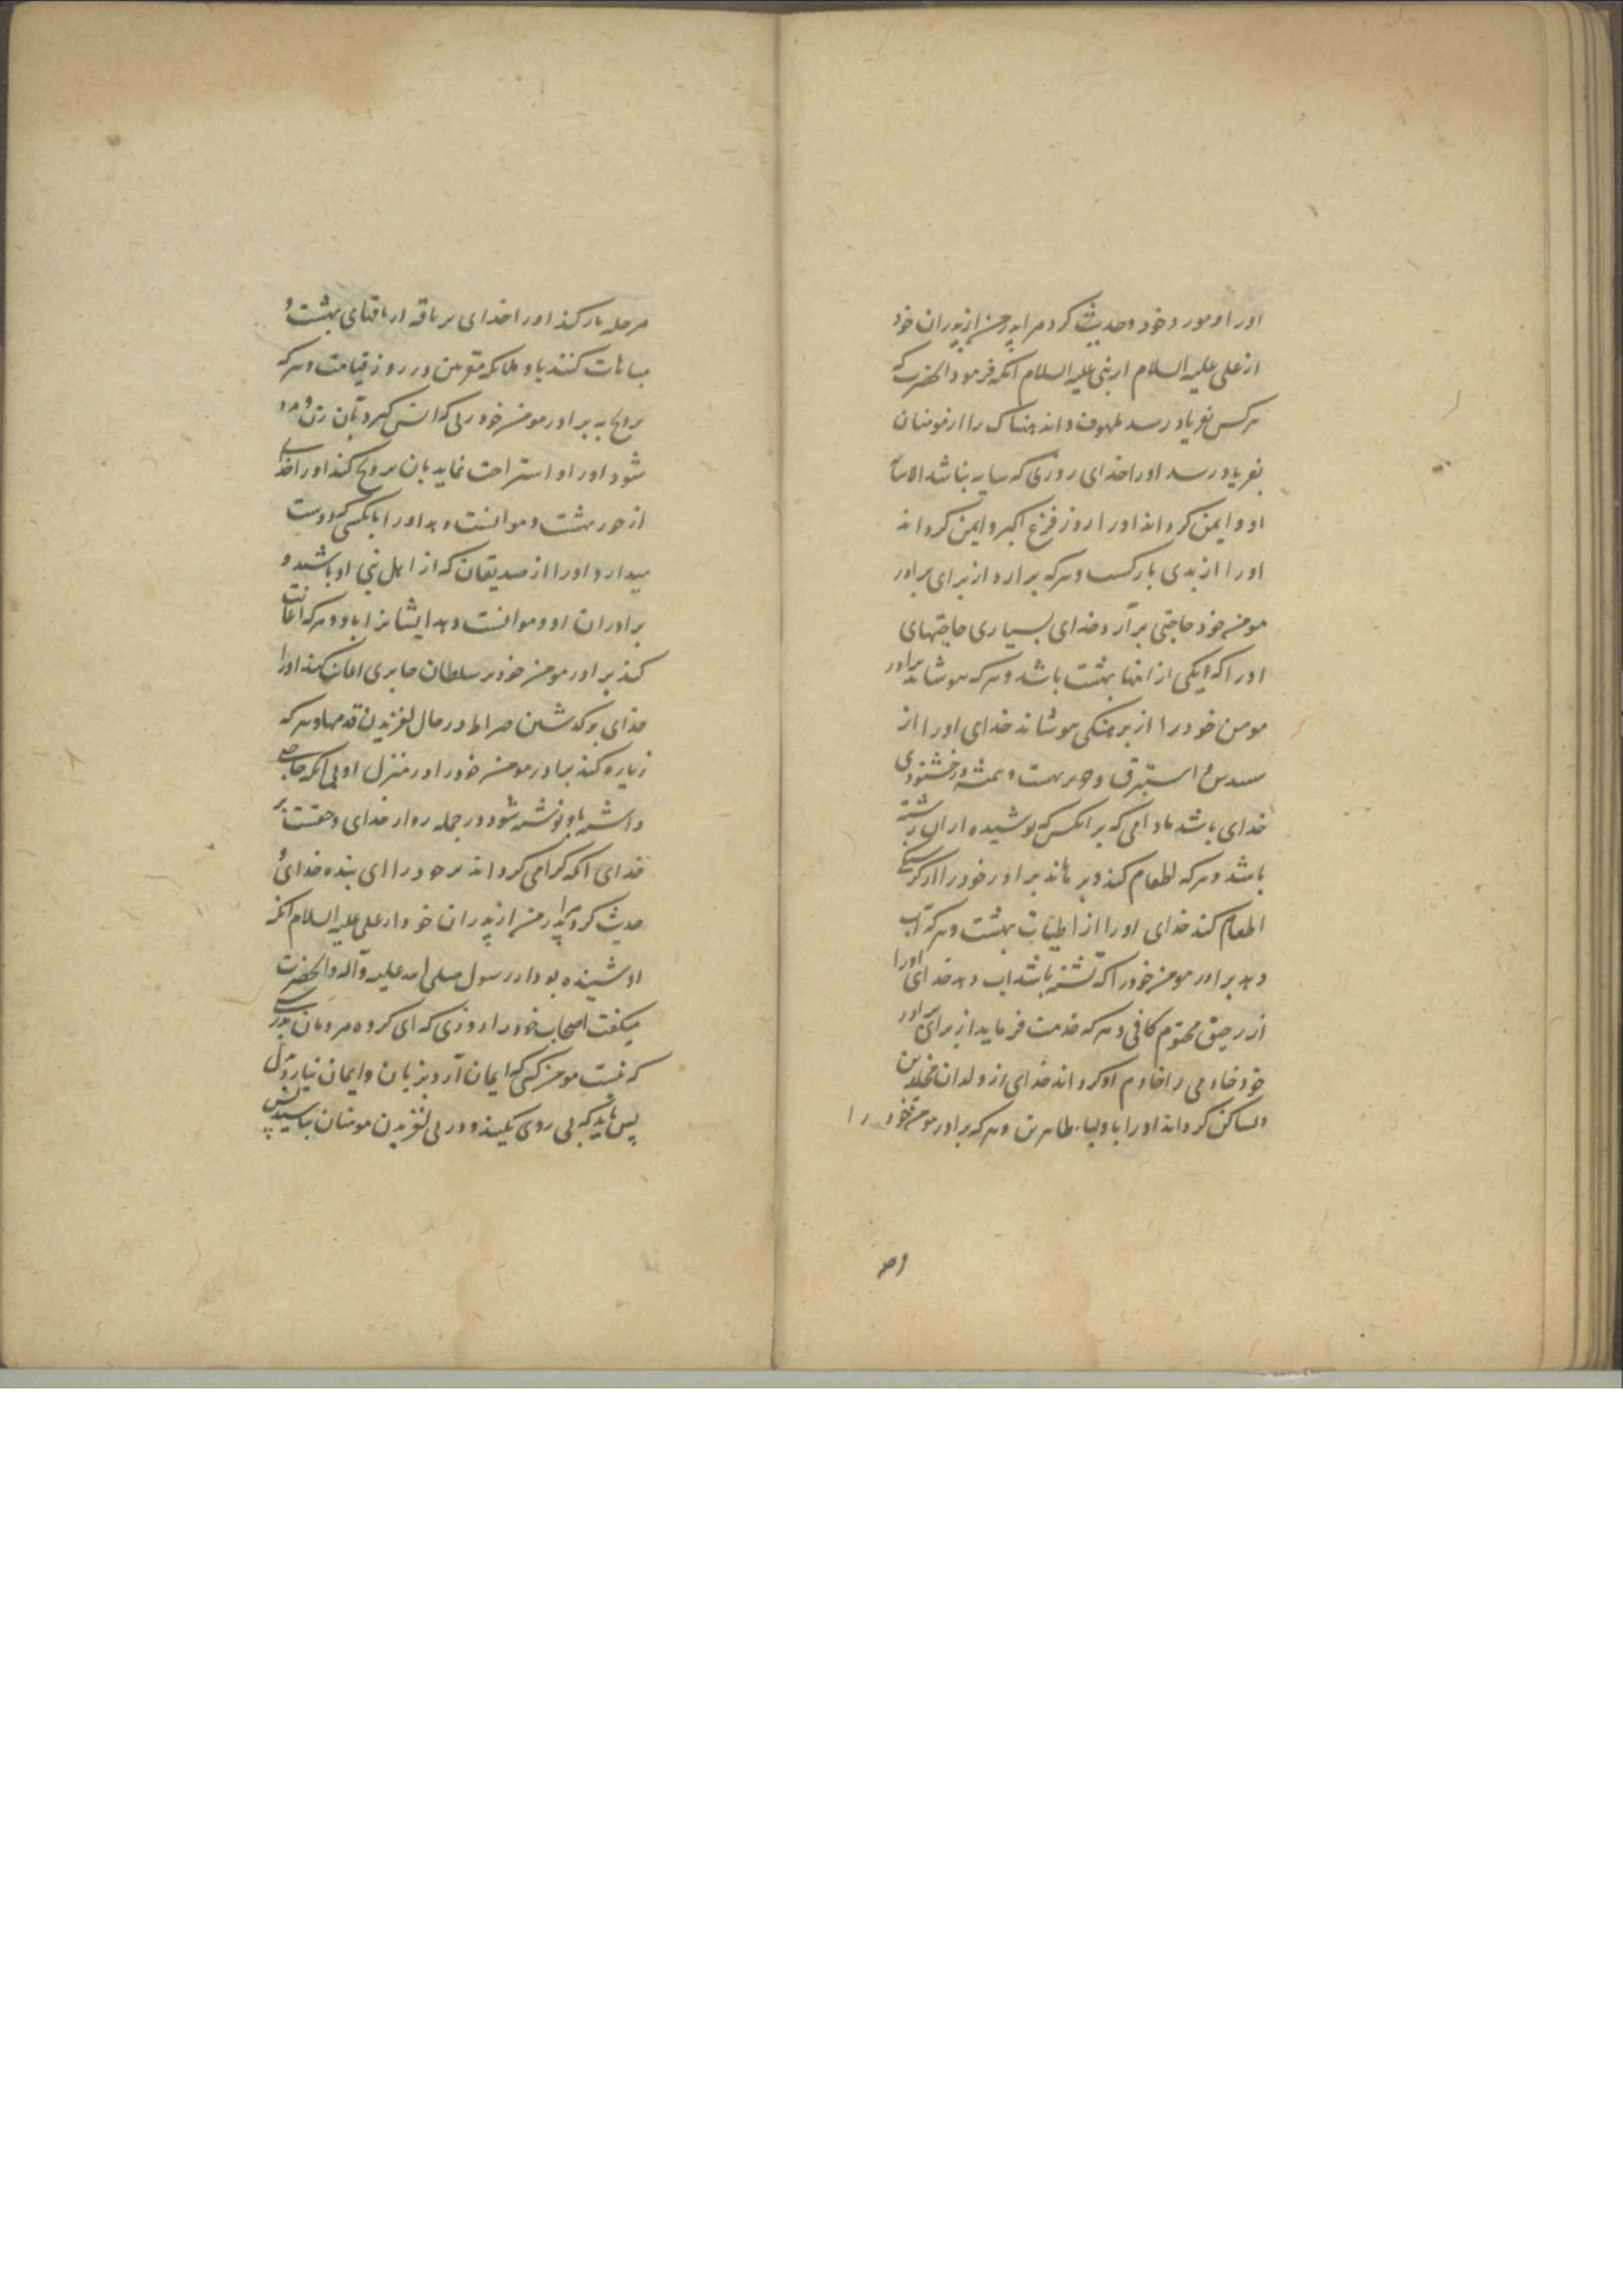 اورا و مورد خود و حدیث کرد مرا پدر من از پدران خود
از علی علیه السلام از نبی علیه السلام آنکه فرمود آنحضرت که
هرکس بفریاد رسد ملهوف و اندهناک را از مومنان
بفریاد رسد اورا خدای روزی که سایه نباشد الا سایه
او و ایمن کرداند اورا روز فزع اکبر و ایمن کرداند
اورا از بدی بازکشت و هرکه برارد از برای برادر
مومن خود حاجتی برآرد خدای بسیاری حاجتهای
اورا که یکی از انها بهشت باشد و هرکه بپوشاند برادر
مومن خود را از برهنکی بپوشاند خدای اورا از
سندس و استبرق و حریر بهشت و همیشه در خشنودی
خدای باشد مادامی که بر انکس که پوشیده از ان رشته
باشد و هرکه اطعام کند و برهاند برادر خود را از کرسنکی
اطعام کند خدای اورا از اطیبات بهشت و هرکه آب
دهد برادر مومن خود را که تشنه باشد اب دهد خدای اورا
از رحیق مختوم کافی و هرکه خدمت فرماید از برای برادر
خود خادمی را خادم او کرداند خدای از ولدان مخلدین
و ساکن کرداند اورا با اولیاء طاهرین و هرکه برادر مومن خود را
مرحله بار کند اورا خدای بر ناقه از ناقهای بهشت و
مباهات کنند باو ملائکه مقربین در روز قیامت و هرکه
برادر مومن خود زنی که انس کیرد بآن زن و
شود اورا و استراحت نماید بان تزویج کند اورا خدای
از حور بهشت و موانست دهد اورا بانکسی که دوست
میدارد اورا از صدیقان که از اهل نبی او باشند و
برادران او و موانست دهد ایشانرا باو و هرکه اعانت
کند برادر مومن خود بر سلطان جابری اعانت کند اورا
خدای بر کذشتن صراط در حال لغزیدن قدمها و هرکه
زیاره کند برادر مومن خود را در منزل او بی انکه حاجتی
داشته باو نوشته شود در جمله زوار خدای و حقست بر
خدای انکه کرامی کرداند زایر خود را ای بنده خدای و
حدیث کرد مرا پدر من از پدران خود از علی علیه السلام انکه
او شنیده بود از رسول صلی الله علیه و آله و انحضرت
میکفت اصحاب خود را روزی که ای کروه مردمان بدرستی
که نیست مومن کسی که ایمان آرد بزبان و ایمان نیارد بدل
پس باید که پی روی نکنید و در پی لغزیدن مومنان نباشید پس